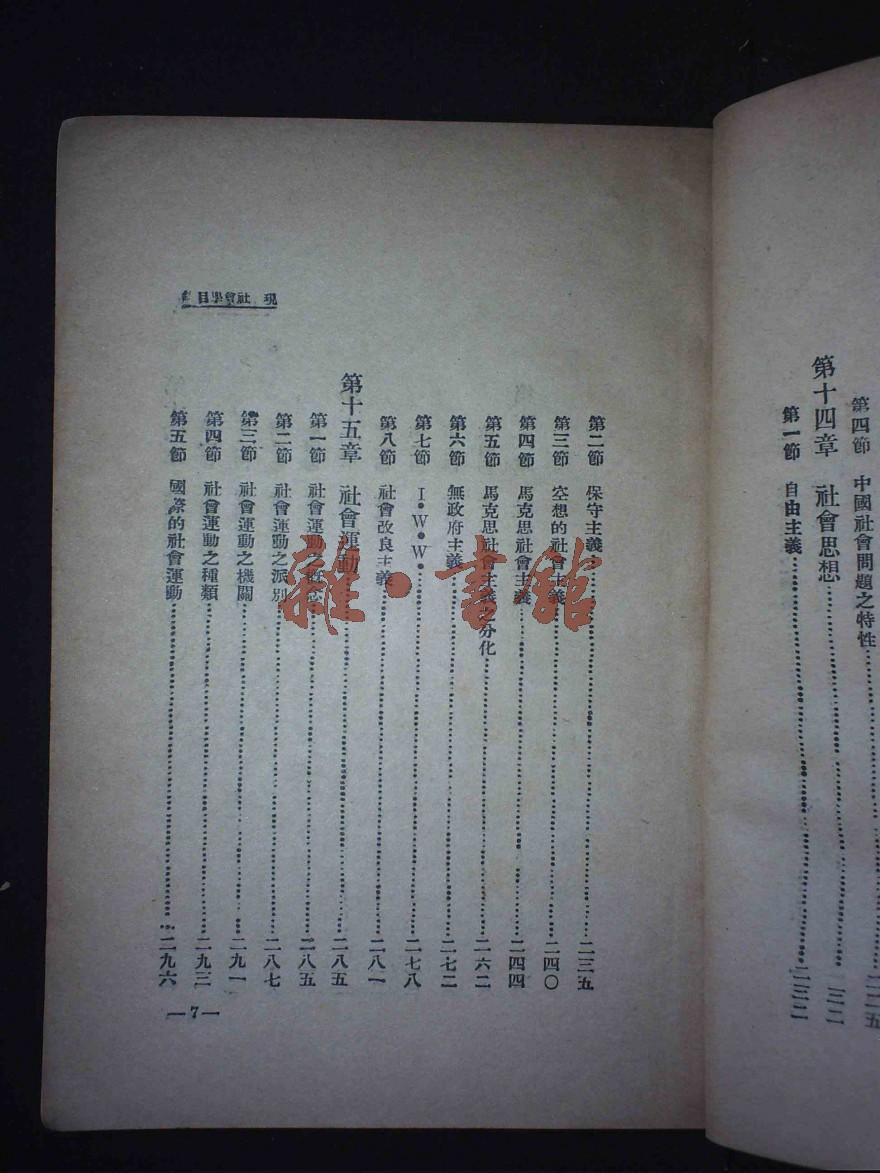 第四節　中國社會問題之特性……二二五
第十四章　社會思想……二三二
第一節　自由主義……二三二
現　社會學目
第二節　保守主義……二三五
第三節　空想的社會主義……二四〇
第四節　馬克思社會主義……二四四
第五節　馬克思社會主義之分化……二六二
第六節　無政府主義……二七二
第七節　I•W•W•……二七八
第八節　社會改良主義……二八一
第十五章　社會運動……二八五
第一節　社會運動之概念……二八五
第二節　社會運動之派別……二八七
第三節　社會運動之機關……二九一
第四節　社會運動之種類……二九三
第五節　國際的社會運動……二九六
—7—
雜•書館